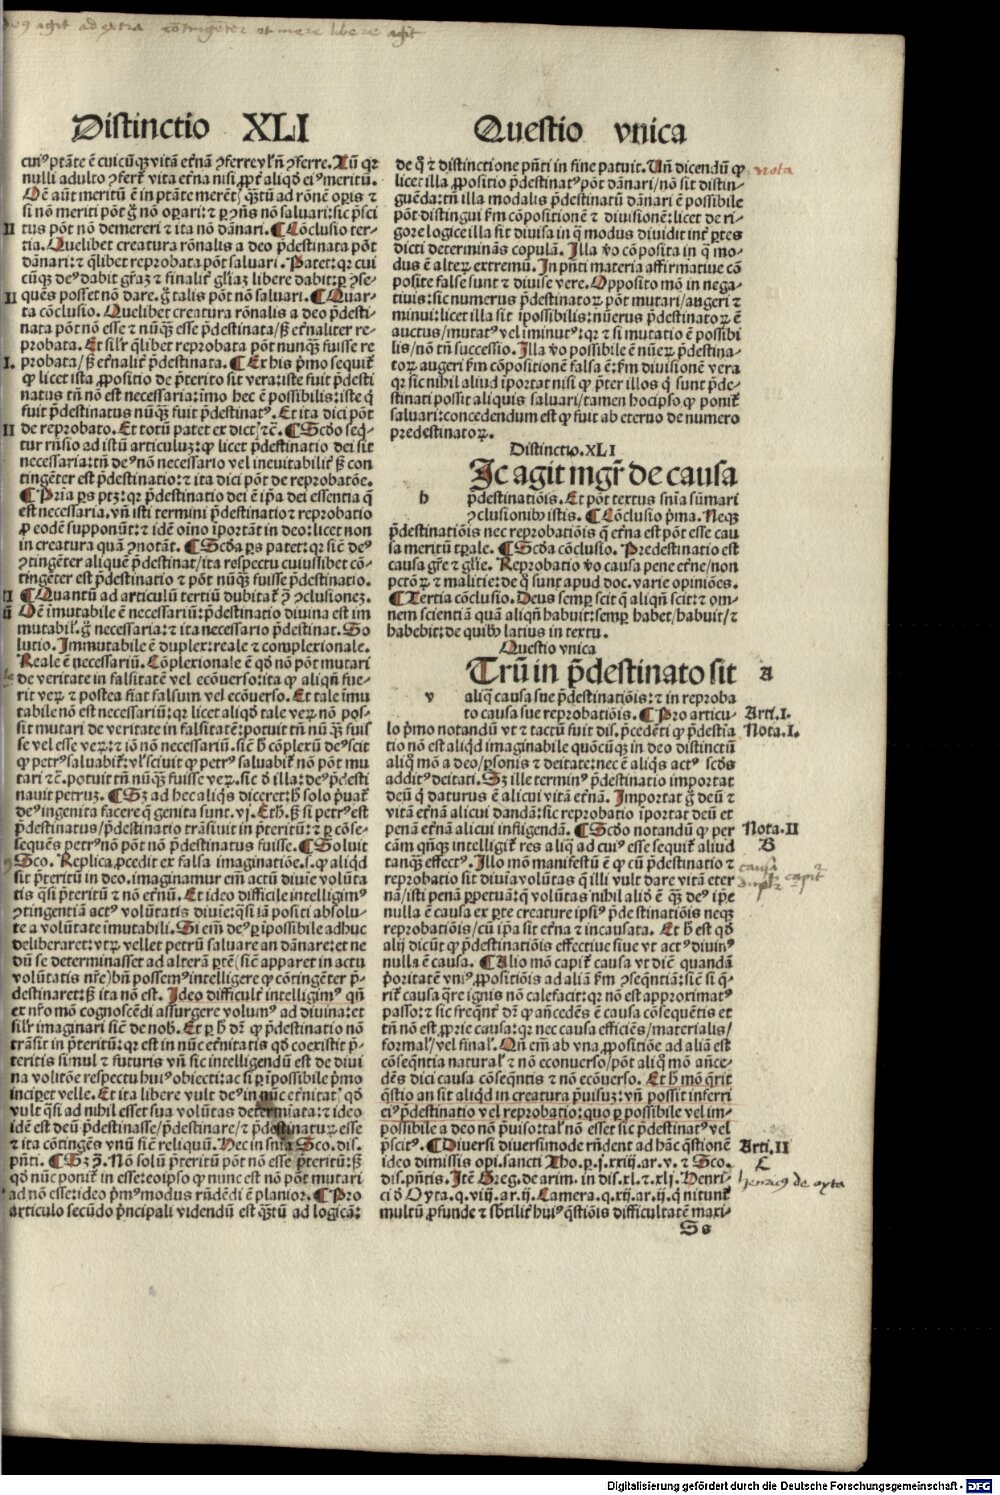 Distinctio XLI Questio vnica
cuiꝰ ptāte ē cuicūqꝫ vitā etnā ꝯferre vłn̄ ꝯferre. Tū qꝛ
nulli adulto ꝯfert vita etna nisi ꝓpt̄ aliqḋ eiꝰ meritū.
Oē aūt meritū ē in ptāte merēt qꝫtū ad rōnē oꝑis ⁊
si nō meriti pōt ḡ nō oꝑari: ⁊ ꝑ ꝯn̄s nō saluari: sic p̄sci
II tus pōt nō demereri ⁊ ita nō dānari. ¶ Cōclusio ter-
tia. Quelibet creatura rōnalis a deo p̄destinata pōt
dānari: ⁊ q̄libet reprobata pōt saluari. Patet: qꝛ cui
cūqꝫ deꝰ dabit gr̄az ⁊ finalit gl̄iaz libere dabit: ꝑ ꝯse-
II quēs posset nō dare. ḡ talis pōt nō saluari. ¶ Quar-
ta cōclusio. Quelibet creatura rōnalis a deo p̄desti-
nata pōt nō esse ⁊ nūqꝫ esse p̄destinata/ sꝫ etnaliter re-
probata. Et silr q̄libet reprobata pōt nunqꝫ fuisse re
I. probata/ sꝫ etnalit p̄destinata. ¶ Ex his p̄mo sequit
ꝙ licet ista ꝓpositio de p̄terito sit vera: iste fuit p̄desti
natus tn̄ nō est necessaria: īmo hec ē possibilis: iste q̄
fuit p̄destinatus nūqꝫ fuit p̄destinatꝰ. Et ita dici pōt
II de reprobato. Et totū patet ex dict ⁊c̄. ¶ Scḋo seq̄-
tur rn̄sio ad istū articuluz: ꝙ licet p̄destinatio dei sit
necessaria: tn̄ deꝰ nō necessario vel ineuitabilit sꝫ con
tingēter est p̄destinatio: ⁊ ita dici pōt de reprobatōe.
¶ Pria ꝑs ptꝫ: qꝛ p̄destinatio dei ē ip̄a dei essentia q̄
est necessaria. vn̄ isti termini p̄destinatio ⁊ reprobatio
ꝓ eodē supponūt: ⁊ idē oīno īportāt in deo: licet non
in creatura quā ꝯnotāt. ¶ Scḋa ꝑs patet: qꝛ siē deꝰ
ꝯtingēter aliquē p̄destinat/ ita respectu cuiuslibet cō-
tingēter est p̄destinatio ⁊ pōt nūqꝫ fuisse p̄destinatio.
II ¶ Quantū ad articulū tertiū dubitat ꝯ ꝯclusionez.
Oē imutabile ē necessariū: p̄destinatio diuina est im
mutabił. ḡ necessaria: ⁊ ita necessario p̄destinat. So
lutio. Immutabile ē duplex: reale ⁊ complexionale.
Reale ē necessariū. Cōplexionale ē qḋ nō pōt mutari
de veritate in falsitatē vel ecōuerso: ita ꝙ aliqn̄ fue-
rit veꝝ ⁊ postea fiat falsum vel ecōuerso. Et tale īmu
tabile nō est necessariū: qꝛ licet aliqḋ tale veꝝ nō pos-
sit mutari de veritate in falsitatē: potuit tn̄ nūqꝫ fuis
se vel esse veꝝ: ⁊ iō nō necessariū. siē h̄ cōplexū deꝰ scit
ꝙ petrꝰ saluabit: vł sciuit ꝙ petrꝰ saluabit nō pōt mu
tari ⁊c̄. potuit tn̄ nūqꝫ fuisse veꝝ. sic ḋ illa: deꝰ p̄desti
nauit petruz. ¶ Sꝫ ad hec aliq̄s diceret: h̄ solo p̄uat
deꝰ ingenita facere que genita sunt. vj. Eth. sꝫ si petrꝰ est
p̄destinatus/ p̄destinatio trāsiuit in p̄teritū: ⁊ ꝑ cōse-
sequēs petrꝰ nō pōt nō p̄destinatus fuisse. ¶ Soluit
Sco. Replica ꝓcedit ex falsa imaginatiōe. s. ꝙ aliqḋ
sit p̄teritū in deo. imaginamur em̄ actū diuīe volūta
tis q̄si p̄teritū ⁊ nō etnū. Et ideo difficile intelligimꝰ
ꝯtingentiā actꝰ volūtatis diuīe: q̄si iā positi absolu-
te a volūtate imutabili. Si em̄ deꝰ ꝑ ipossibile adhuc
deliberaret: vtꝝ vellet petrū saluare an dānare: et ne
dū se determinasset ad alterā ꝑtē (siē apparet in actu
volūtatis nr̄e) bn̄ possemꝰ intelligere ꝙ cōtingēter p̄-
destinaret: sꝫ ita nō est. Ideo difficult intelligimꝰ qn̄
ex nr̄o mō cognoscēdi assurgere volumꝰ ad diuina: et
silr imaginari siē de nob. Et ꝑ h̄ dr̄ ꝙ p̄destinatio nō
trāsit in p̄teritū: qꝛ est in nūc etnitatis qḋ coexistit p̄-
teritis simul ⁊ futuris vn̄ sic intelligendū est de diui
na volitōe respectu huiꝰ obiecti: ac si ꝑ ipossibile p̄mo
inciperet velle. Et ita libere vult deꝰ in nūc etnitat qḋ
vult q̄si ad nihil esset sua volūtas determiata: ⁊ ideo
idē est deū p̄destinasse/ p̄destinare/ ⁊ p̄destinaturū esse
⁊ ita cōtingēs vnū siē reliquū. Hec in sn̄ia Sco. dis.
pn̄ti. ¶ Sꝫ ꝯ. Nō solū p̄teritū pōt nō esse p̄teritū: sꝫ
qḋ nūc ponit in esse: eoipso ꝙ nunc est nō pōt mutari
ad nō esse: ideo p̄mꝰ modus rn̄dēdi ē planior. ¶ Pro
articulo secūdo p̄ncipali videndū est qꝫtū ad logicā:
de q̄ ⁊ distinctione pn̄ti in fine patuit. Vn̄ dicendū ꝙ
licet illa ꝓpositio p̄destinatꝰ pōt dānari/ nō sit distin-
guēda: tn̄ illa modalis p̄destinatū dānari ē possibile
pōt distingui km̄ cōpositionē ⁊ diuisionē: licet de ri-
gore logice illa sit diuisa in q̄ modus diuidit int ꝑtes
dicti determinās copulā. Illa v̄o cōposita in q̄ mo-
dus ē alteꝝ extremū. In pn̄ti materia affirmatiue cō
posite false sunt ⁊ diuise vere. Opposito mō in nega-
tiuis: sic numerus p̄destinatoꝝ pōt mutari/ augeri ⁊
minui: licet illa sit ipossibilis: nūerus p̄destinatoꝝ ē
auctus/ mutatꝰ vel iminutꝰ: qꝛ ⁊ si mutatio ē possibi
lis/ nō tn̄ successio. Illa v̄o possibile ē nūeꝝ p̄destina-
toꝝ augeri km̄ cōpositionē falsa ē: km̄ diuisionē vera
qꝛ sic nihil aliud iportat nisi ꝙ p̄ter illos q̄ sunt p̄de-
stinati possit aliquis saluari/ tamen hocipso ꝙ ponit
saluari: concedendum est ꝙ fuit ab eterno de numero
predestinatoꝝ.
Distinctio. XLI
h Ic agit mgr̄ de causa
p̄destinatiōis. Et pōt textus sn̄ia sūmari
ꝯclusionibꝰ istis. ¶ Cōclusio p̄ma. Neqꝫ
p̄destinatiōis nec reprobatiōis q̄ etna est pōt esse cau
sa meritū tꝑale. ¶ Scḋa cōclusio. Predestinatio est
causa gr̄e ⁊ gl̄ie. Reprobatio v̄o causa pene etne/ non
pctōꝝ ⁊ malitie: de q̄ sunt apud doc. varie opiniōes.
¶ Tertia cōclusio. Deus semꝑ scit q̄ aliqn̄ scit: ⁊ om-
nem scientiā quā aliqn̄ habuit: semꝑ habet/ habuit/ ⁊
habebit: de quibꝰ latius in textu.
Questio vnica
v Trū in p̄destinato sit A
aliq̄ causa sue p̄destinatiōis: ⁊ in reproba
to causa sue reprobatiōis. ¶ Pro articu- Arti. I.
lo p̄mo notandū vt ⁊ tactū fuit dis. p̄cedēti ꝙ p̄destia Nota. I.
tio nō est aliqḋ imaginabile quōcūqꝫ in deo distinctū
aliq̄ mō a deo/ ꝑsonis ⁊ deitate: nec ē aliq̄s actꝰ scḋs
additꝰ deitati. Sꝫ ille terminꝰ p̄destinatio importat
deū q̄ daturus ē alicui vitā etnā. Importat ḡ deū ⁊
vitā etnā alicui dandā: sic reprobatio iportat deū et
penā etnā alicui infligendā. ¶ Scḋo notandū ꝙ per Nota. II
cām qn̄qꝫ intelligit res aliq̄ ad cuiꝰ esse sequit aliud B
tanqꝫ effectꝰ. Illo mō manifestū ē ꝙ cū p̄destinatio ⁊
reprobatio sit diuīa volūtas q̄ illi vult dare vitā eter
nā/ isti penā ꝑpetuā: q̄ volūtas nihil aliḋ ē qꝫ deꝰ ip̄e
nulla ē causa ex ꝑte creature ipsiꝰ p̄destinatiōis neqꝫ
reprobatiōis/ cū ip̄a sit etna ⁊ incausata. Et h̄ est qḋ
alij dicūt ꝙ p̄destinatiōis effectiue siue vt actꝰ diuinꝰ
nulla ē causa. ¶ Alio mō capit causa vt diē quandā
p̄oritatē vniꝰ ꝓpositiōis ad aliā km̄ ꝯseq̄ntiā: siē si q̄-
rit causa q̄re ignis nō calefacit: qꝛ nō est approximatꝰ
passo: ⁊ sic freqn̄t dr̄ ꝙ an̄cedēs ē causa cōsequētis et
tn̄ nō est ꝓprie causa: qꝛ nec causa efficiēs/ materialis/
formał/ vel finał. Qn̄ em̄ ab vna ꝓpositiōe ad aliā est
cōseq̄ntia natural ⁊ nō econuerso/ pōt aliq̄ mō an̄ce-
dēs dici causa cōseq̄ntis ⁊ nō ecōuerso. Et h̄ mō q̄rit
q̄stio an sit aliqḋ in creatura p̄uisuz: vn̄ possit inferri
eiꝰ p̄destinatio vel reprobatio: quo ꝑ possibile vel im-
possibile a deo nō p̄uiso: tał nō esset sic p̄destinatꝰ vel
p̄scitꝰ. ¶ Diuersi diuersimode rn̄dent ad hāc q̄stionē Arti. II
ideo dimissis opi. sancti Tho. ꝑ. j. xxiij. ar. v. ⁊ Sco. C
dis. pn̄tis. Itē Greg. de arim. in dis. xl. ⁊ xlj. Henri- henricꝰ de oyta
ci ḋ Oyta. q. viij. ar. ij. Camera. q. xij. ar. ij. q nitunt
multū ꝓfunde ⁊ sbtilit huiꝰ q̄stiōis difficultatē maxi-
Ss
nota
Digitalisierung gefördert durch die Deutsche Forschungsgemeinschaft - DFG